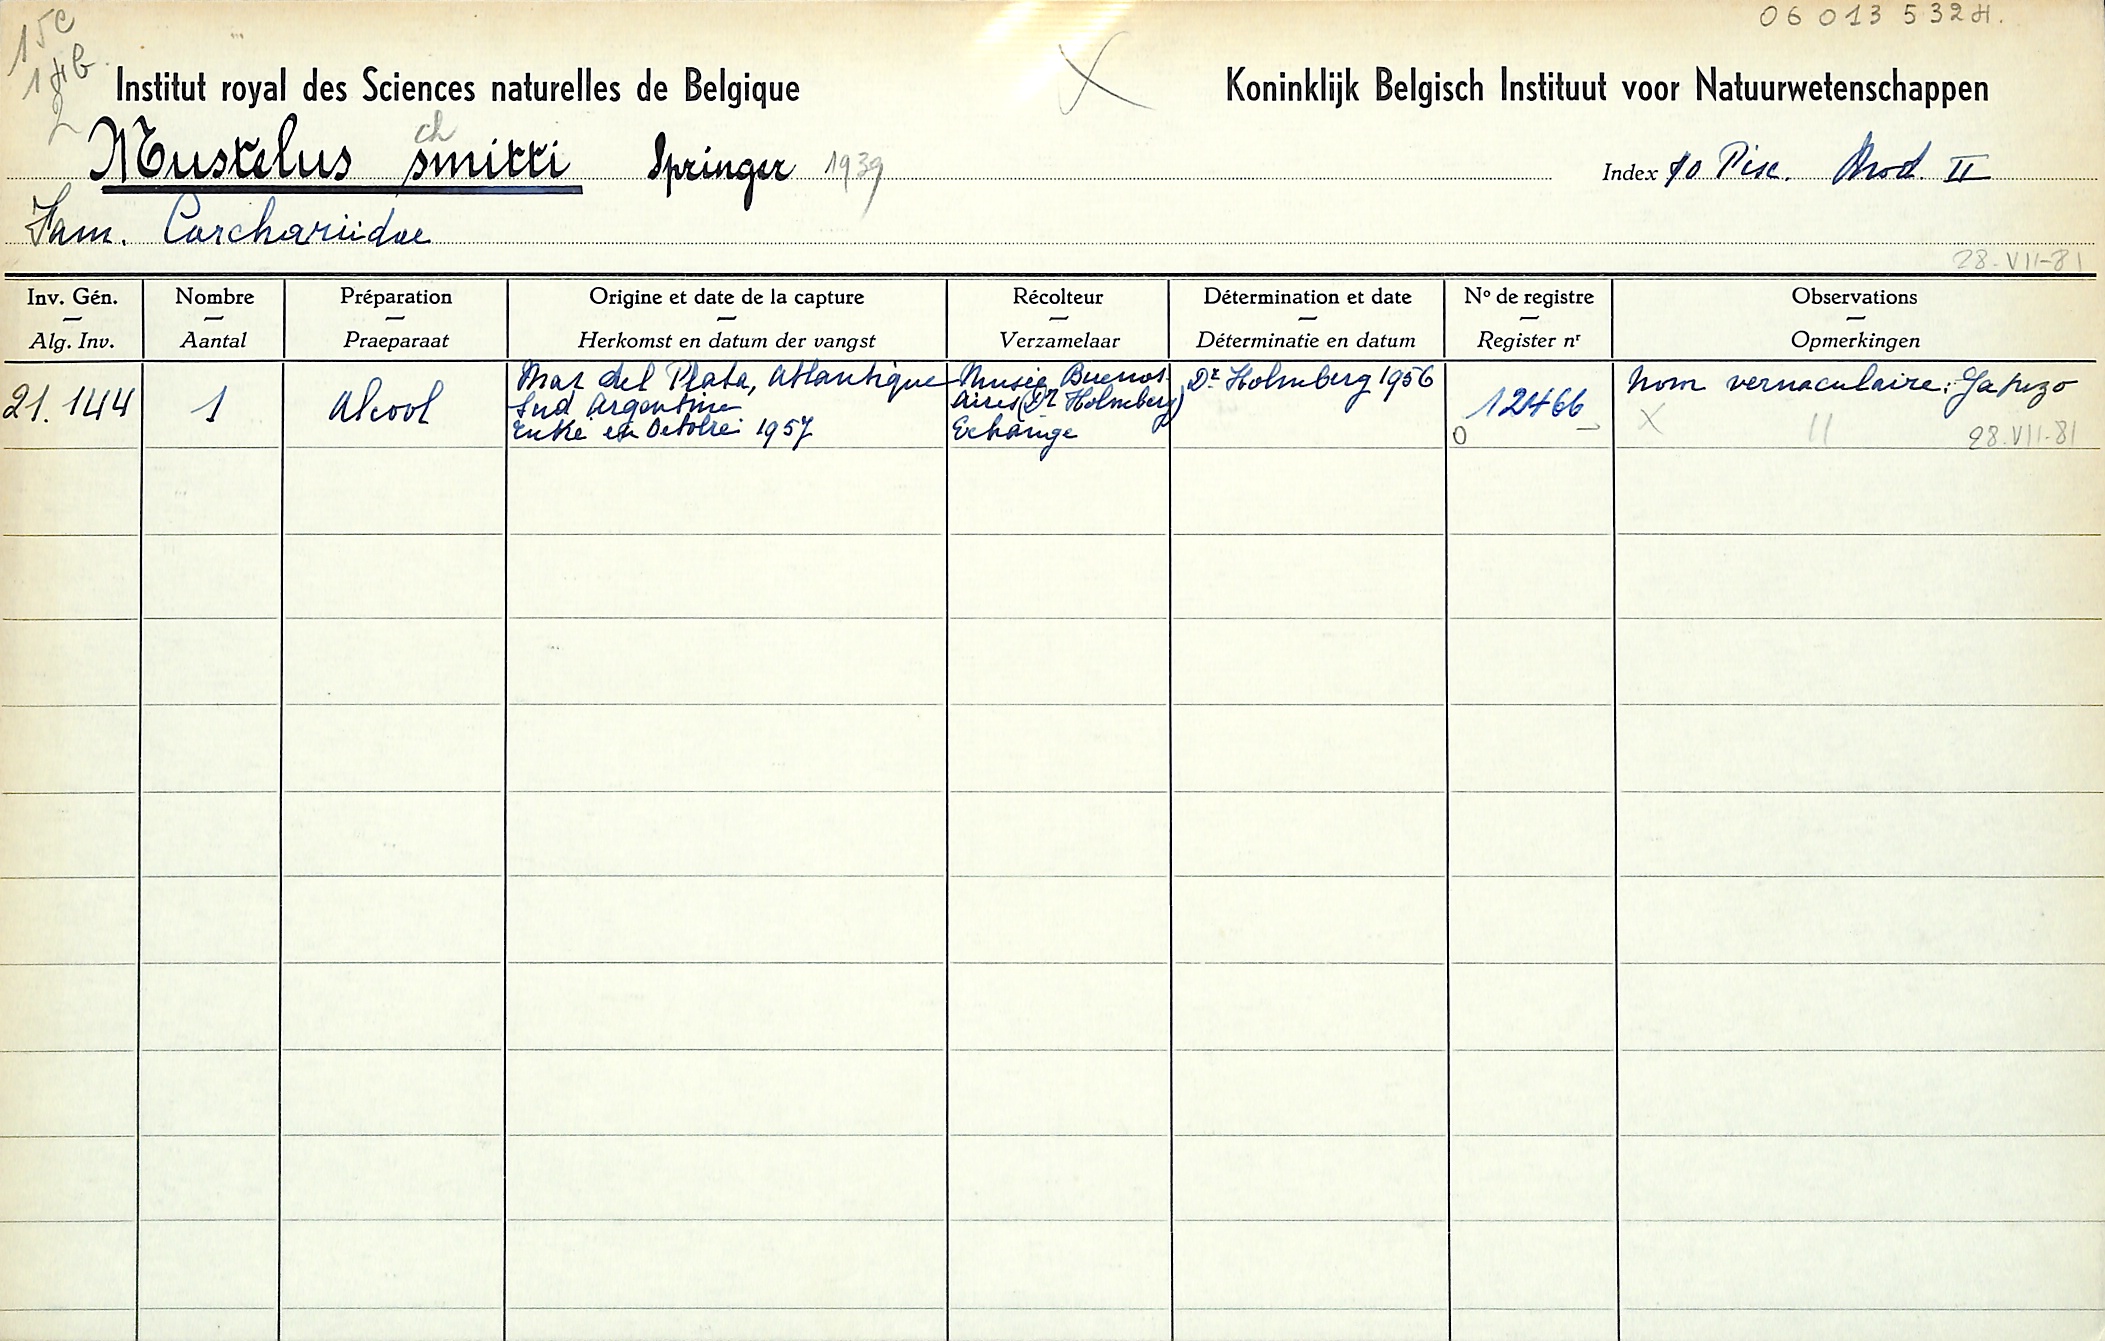 15c
14b
2
06 013 532 H.
Institut royal des Sciences naturelles de Belgique
Koninklijk Belgisch Instituut voor Natuurwetenschappen
ch
Mustelus smitti Springer 1939
Index 10 Pisc. Mod. II
Fam. Carchariidae
28-VII-81
Inv. Gén. Nombre Préparation Origine et date de la capture Récolteur Détermination et date No de registre Observations
Alg. Inv. Aantal Praeparaat Herkomst en datum der vangst Verzamelaar Déterminatie en datum Register nr Opmerkingen
21.144 1 Alcool
Mar del Plata, Atlantique
Sud Argentine
Entré en Octobre 1957
Musée Buenos-
Aires (Dr Holmberg)
Echange
Dr Holmberg 1956
12466
0
Nom vernaculaire: Gatuzo
X 11 28.VII-81